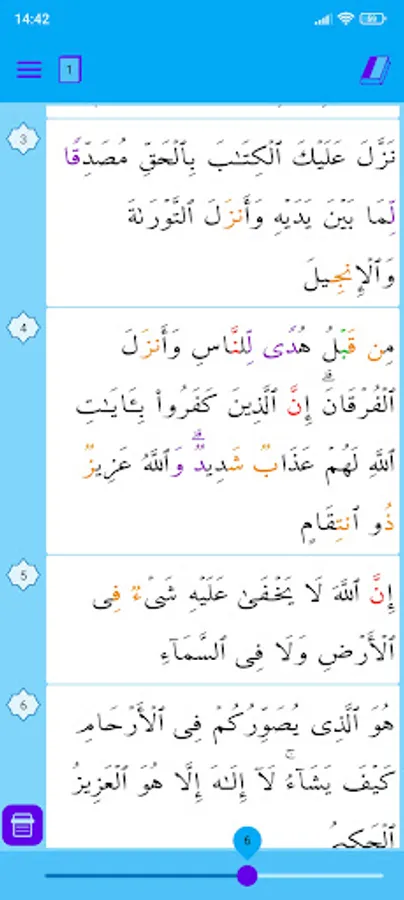 14:42
59
1
3
نَزَّلَ عَلَيْكَ ٱلْكِتَٰبَ بِٱلْحَقِّ مُصَدِّقًا
لِّمَا بَيْنَ يَدَيْهِ وَأَنزَلَ ٱلتَّوْرَىٰةَ
وَٱلْإِنجِيلَ
4
مِن قَبْلُ هُدًى لِّلنَّاسِ وَأَنزَلَ
ٱلْفُرْقَانَ ۗ إِنَّ ٱلَّذِينَ كَفَرُوا۟ بِـَٔايَٰتِ
ٱللَّهِ لَهُمْ عَذَابٌ شَدِيدٌ ۗ وَٱللَّهُ عَزِيزٌ
ذُو ٱنتِقَامٍ
5
إِنَّ ٱللَّهَ لَا يَخْفَىٰ عَلَيْهِ شَىْءٌ فِى
ٱلْأَرْضِ وَلَا فِى ٱلسَّمَآءِ
6
هُوَ ٱلَّذِى يُصَوِّرُكُمْ فِى ٱلْأَرْحَامِ
كَيْفَ يَشَآءُ ۚ لَآ إِلَٰهَ إِلَّا هُوَ ٱلْعَزِيزُ
ٱلْحَكِيمُ
6